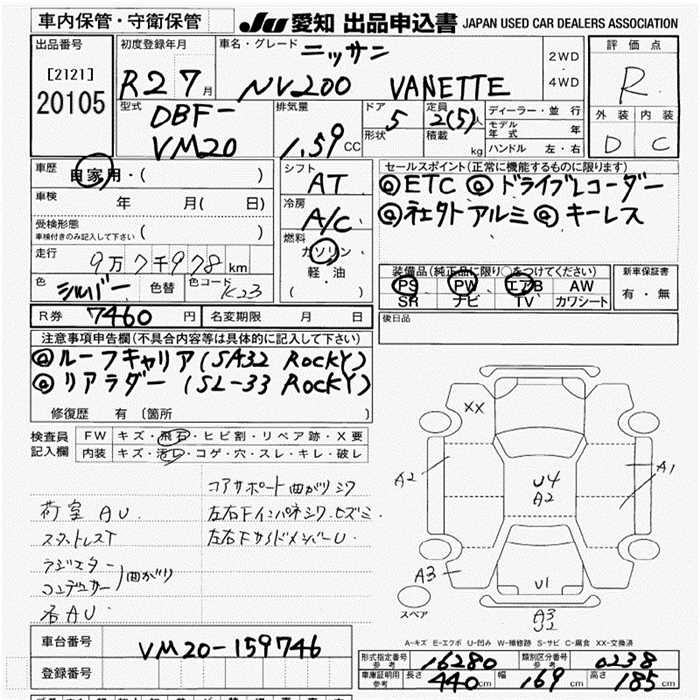 車内保管・守衛保管
JU 愛知 出品申込書 JAPAN USED CAR DEALERS ASSOCIATION
出品番号
[2121]
20105
初度登録年月
R2 7月
車名・グレード
ニッサン
NV200 VANETTE
2WD
・
4WD
評価点
R
外装 内装
D C
型式
DBF-
VM20
排気量
1.59 CC
ドア
5
形状
定員
2(5)人
積載 kg
ディーラー・並行
モデル年式 年
ハンドル 左・右
車歴
自家用・( )
車検
年 月( 日)
受検形態
車検付きのみ記入して下さい ( )
走行
9万7千978km
色
シルバー
色替
色コード
K23
シフト
AT
冷房
A/C
燃料
ガソリン
軽・油
( )
セールスポイント(正常に機能するものに限ります)
◎ETC ◎ドライブレコーダー
◎社外アルミ ◎キーレス
装備品(純正品に限り○をつけてください)
PS PW エアB AW
SR ナビ TV カワシート
新車保証書
有・無
R券 7460円
名変期限 月 日
後日品
注意事項申告欄(不具合内容等は具体的に記入して下さい)
◎ルーフキャリア(SA32 ROCKY)
◎リアラダー (SL-33 ROCKY)
修復歴 有〔箇所 〕
検査員
記入欄
FW キズ・飛石・ヒビ割・リペア跡・X要
内装 キズ・汚レ・コゲ・穴・スレ・キレ・破レ
コアサポート曲がりシワ
荷室AU.
左右Fインパネシワ.ヒズミ.
左右FサイドメンバーU.
ラジエター
コンデンサー)曲がり
右AU
XX
A2
U4
A2
A1
A3
U1
A3
U2
スペア
A-キズ E-エクボ U-凹み W-補修跡 S-サビ C-腐食 XX-交換済
車台番号
VM20-159746
登録番号
形式指定番号
参考
16280
類別区分番号
参考
0238
車庫証明用
参考
長さ 440cm 幅 169cm 高さ 185cm